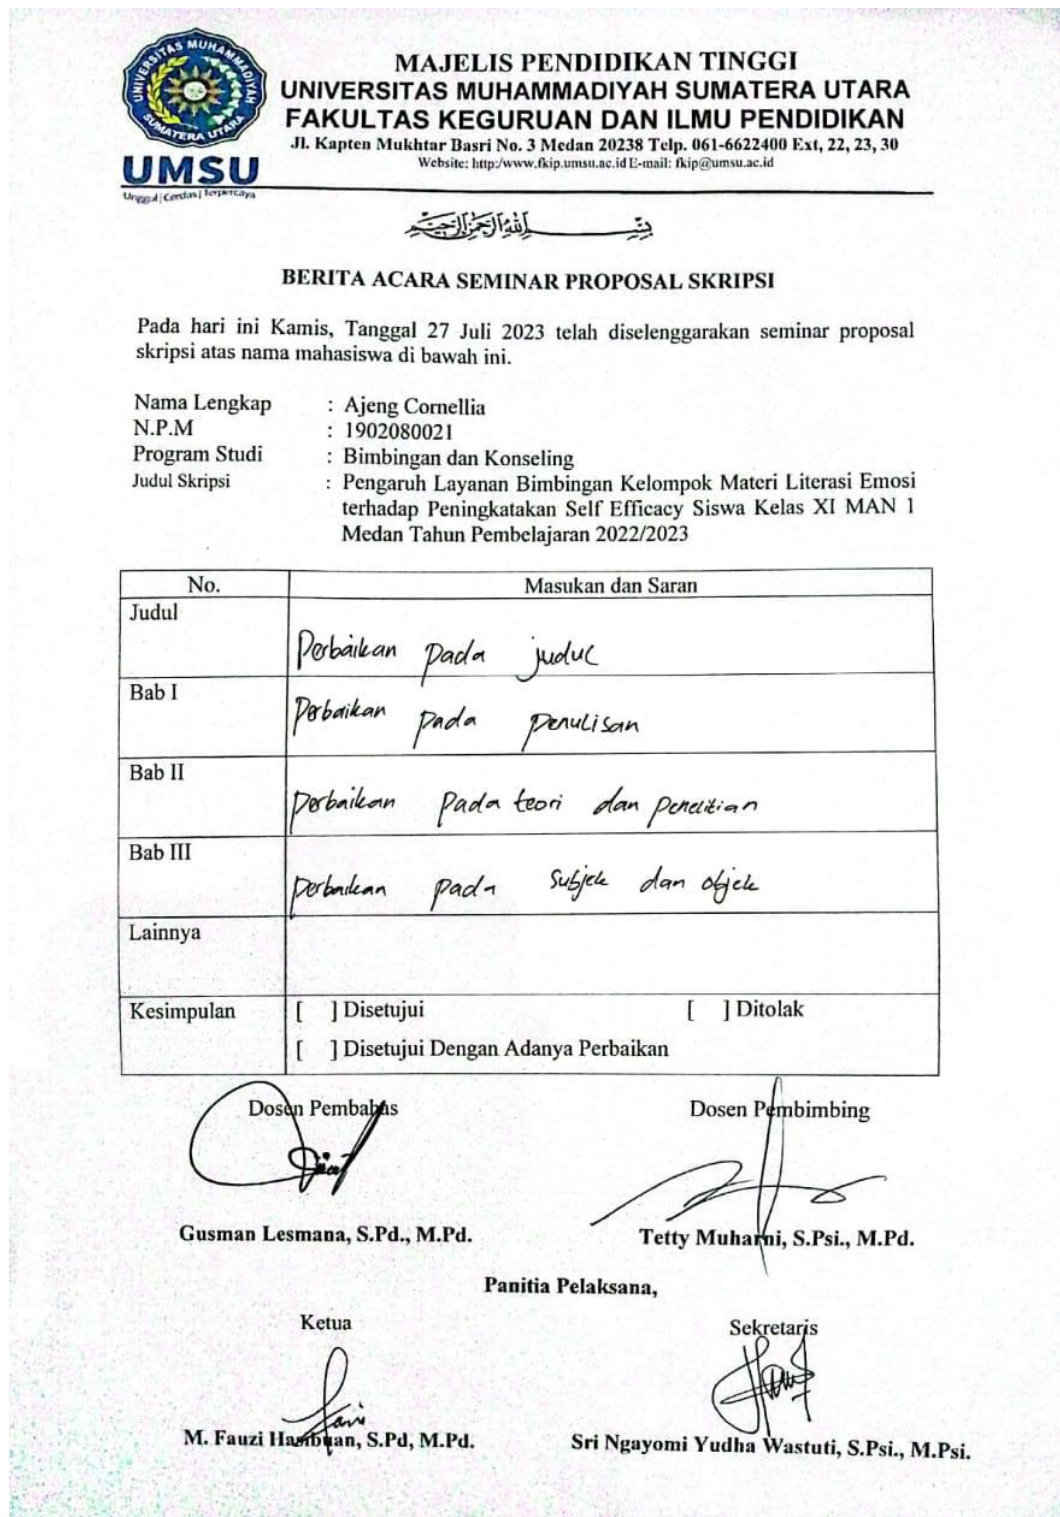 UNIVERSITAS MUHAMMADIYAH
SUMATERA UTARA
UMSU
Unggul | Cerdas | Terpercaya
MAJELIS PENDIDIKAN TINGGI
UNIVERSITAS MUHAMMADIYAH SUMATERA UTARA
FAKULTAS KEGURUAN DAN ILMU PENDIDIKAN
Jl. Kapten Mukhtar Basri No. 3 Medan 20238 Telp. 061-6622400 Ext, 22, 23, 30
Website: http:/www.fkip.umsu.ac.id E-mail: fkip@umsu.ac.id
بِسْــــــمِ اللهِ الرَّحْمٰنِ الرَّحِيْمِ
BERITA ACARA SEMINAR PROPOSAL SKRIPSI
Pada hari ini Kamis, Tanggal 27 Juli 2023 telah diselenggarakan seminar proposal
skripsi atas nama mahasiswa di bawah ini.
Nama Lengkap : Ajeng Cornellia
N.P.M : 1902080021
Program Studi : Bimbingan dan Konseling
Judul Skripsi : Pengaruh Layanan Bimbingan Kelompok Materi Literasi Emosi
terhadap Peningkatakan Self Efficacy Siswa Kelas XI MAN 1
Medan Tahun Pembelajaran 2022/2023
No. Masukan dan Saran
Judul Perbaikan pada judul
Bab I Perbaikan pada penulisan
Bab II perbaikan pada teori dan penelitian
Bab III perbaikan pada subjek dan objek
Lainnya
Kesimpulan [ ] Disetujui [ ] Ditolak
[ ] Disetujui Dengan Adanya Perbaikan
Dosen Pembahas Dosen Pembimbing
Gusman Lesmana, S.Pd., M.Pd. Tetty Muharni, S.Psi., M.Pd.
Panitia Pelaksana,
Ketua Sekretaris
M. Fauzi Hasibuan, S.Pd, M.Pd. Sri Ngayomi Yudha Wastuti, S.Psi., M.Psi.